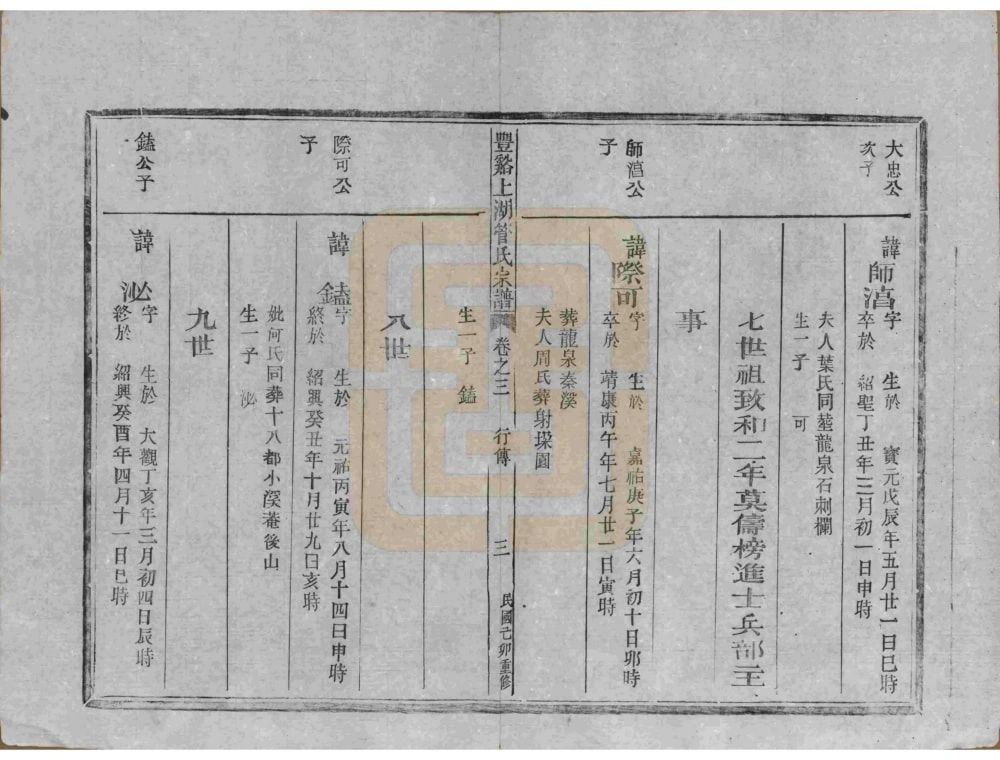 大忠公
次子
諱師淐字 生於 寶元戊辰年五月廿一日巳時
卒於 紹聖丁丑年三月初一日申時
夫人葉氏同塟龍泉石刺欄
生一子 可
七世祖致和二年莫儔榜進士兵部主
事
師淐公
子
諱際可字 生於 嘉祐庚子年六月初十日卯時
卒於 靖康丙午年七月廿一日寅時
葬龍泉秦溪
夫人周氏葬射垜園
豐谿上湖管氏宗譜 卷之三 行傳 三 民國己卯重修
生一子 鎑
八世
際可公
子
諱鎑字 生於 元祐丙寅年八月十四日申時
終於 紹興癸丑年十月廿九日亥時
妣何氏同葬十八都小溪菴後山
生一子 泌
九世
鎑公子
諱泌字 生於 大觀丁亥年三月初四日辰時
終於 紹興癸酉年四月十一日巳時